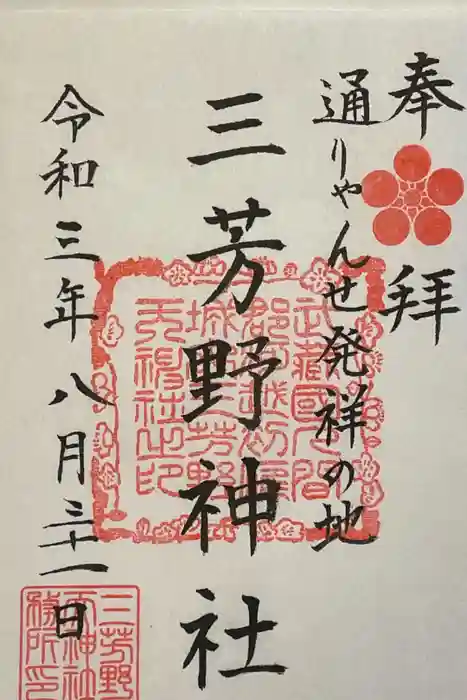 奉拝
通りゃんせ発祥の地
三芳野神社
令和三年八月三十一日
武藏國入間
郡河越初雁
城内三芳野
天神社之印
三芳野
天神社
務所印